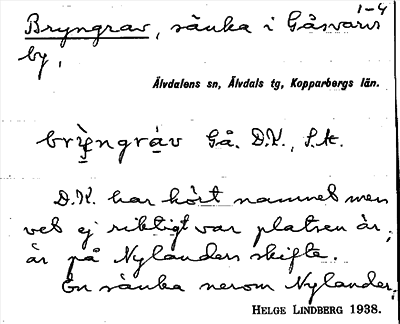 1-4
Bryngrav, sänka i Gåsvarvs
by,
Älvdalens sn, Älvdals tg, Kopparbergs län.
brỳngràv Gå. D.K., S.A.
D.K. har hört namnet men
vet ej riktigt var platsen är,
är på Nylanders skifte.
En sänka nerom Nylander.
HELGE LINDBERG 1938.